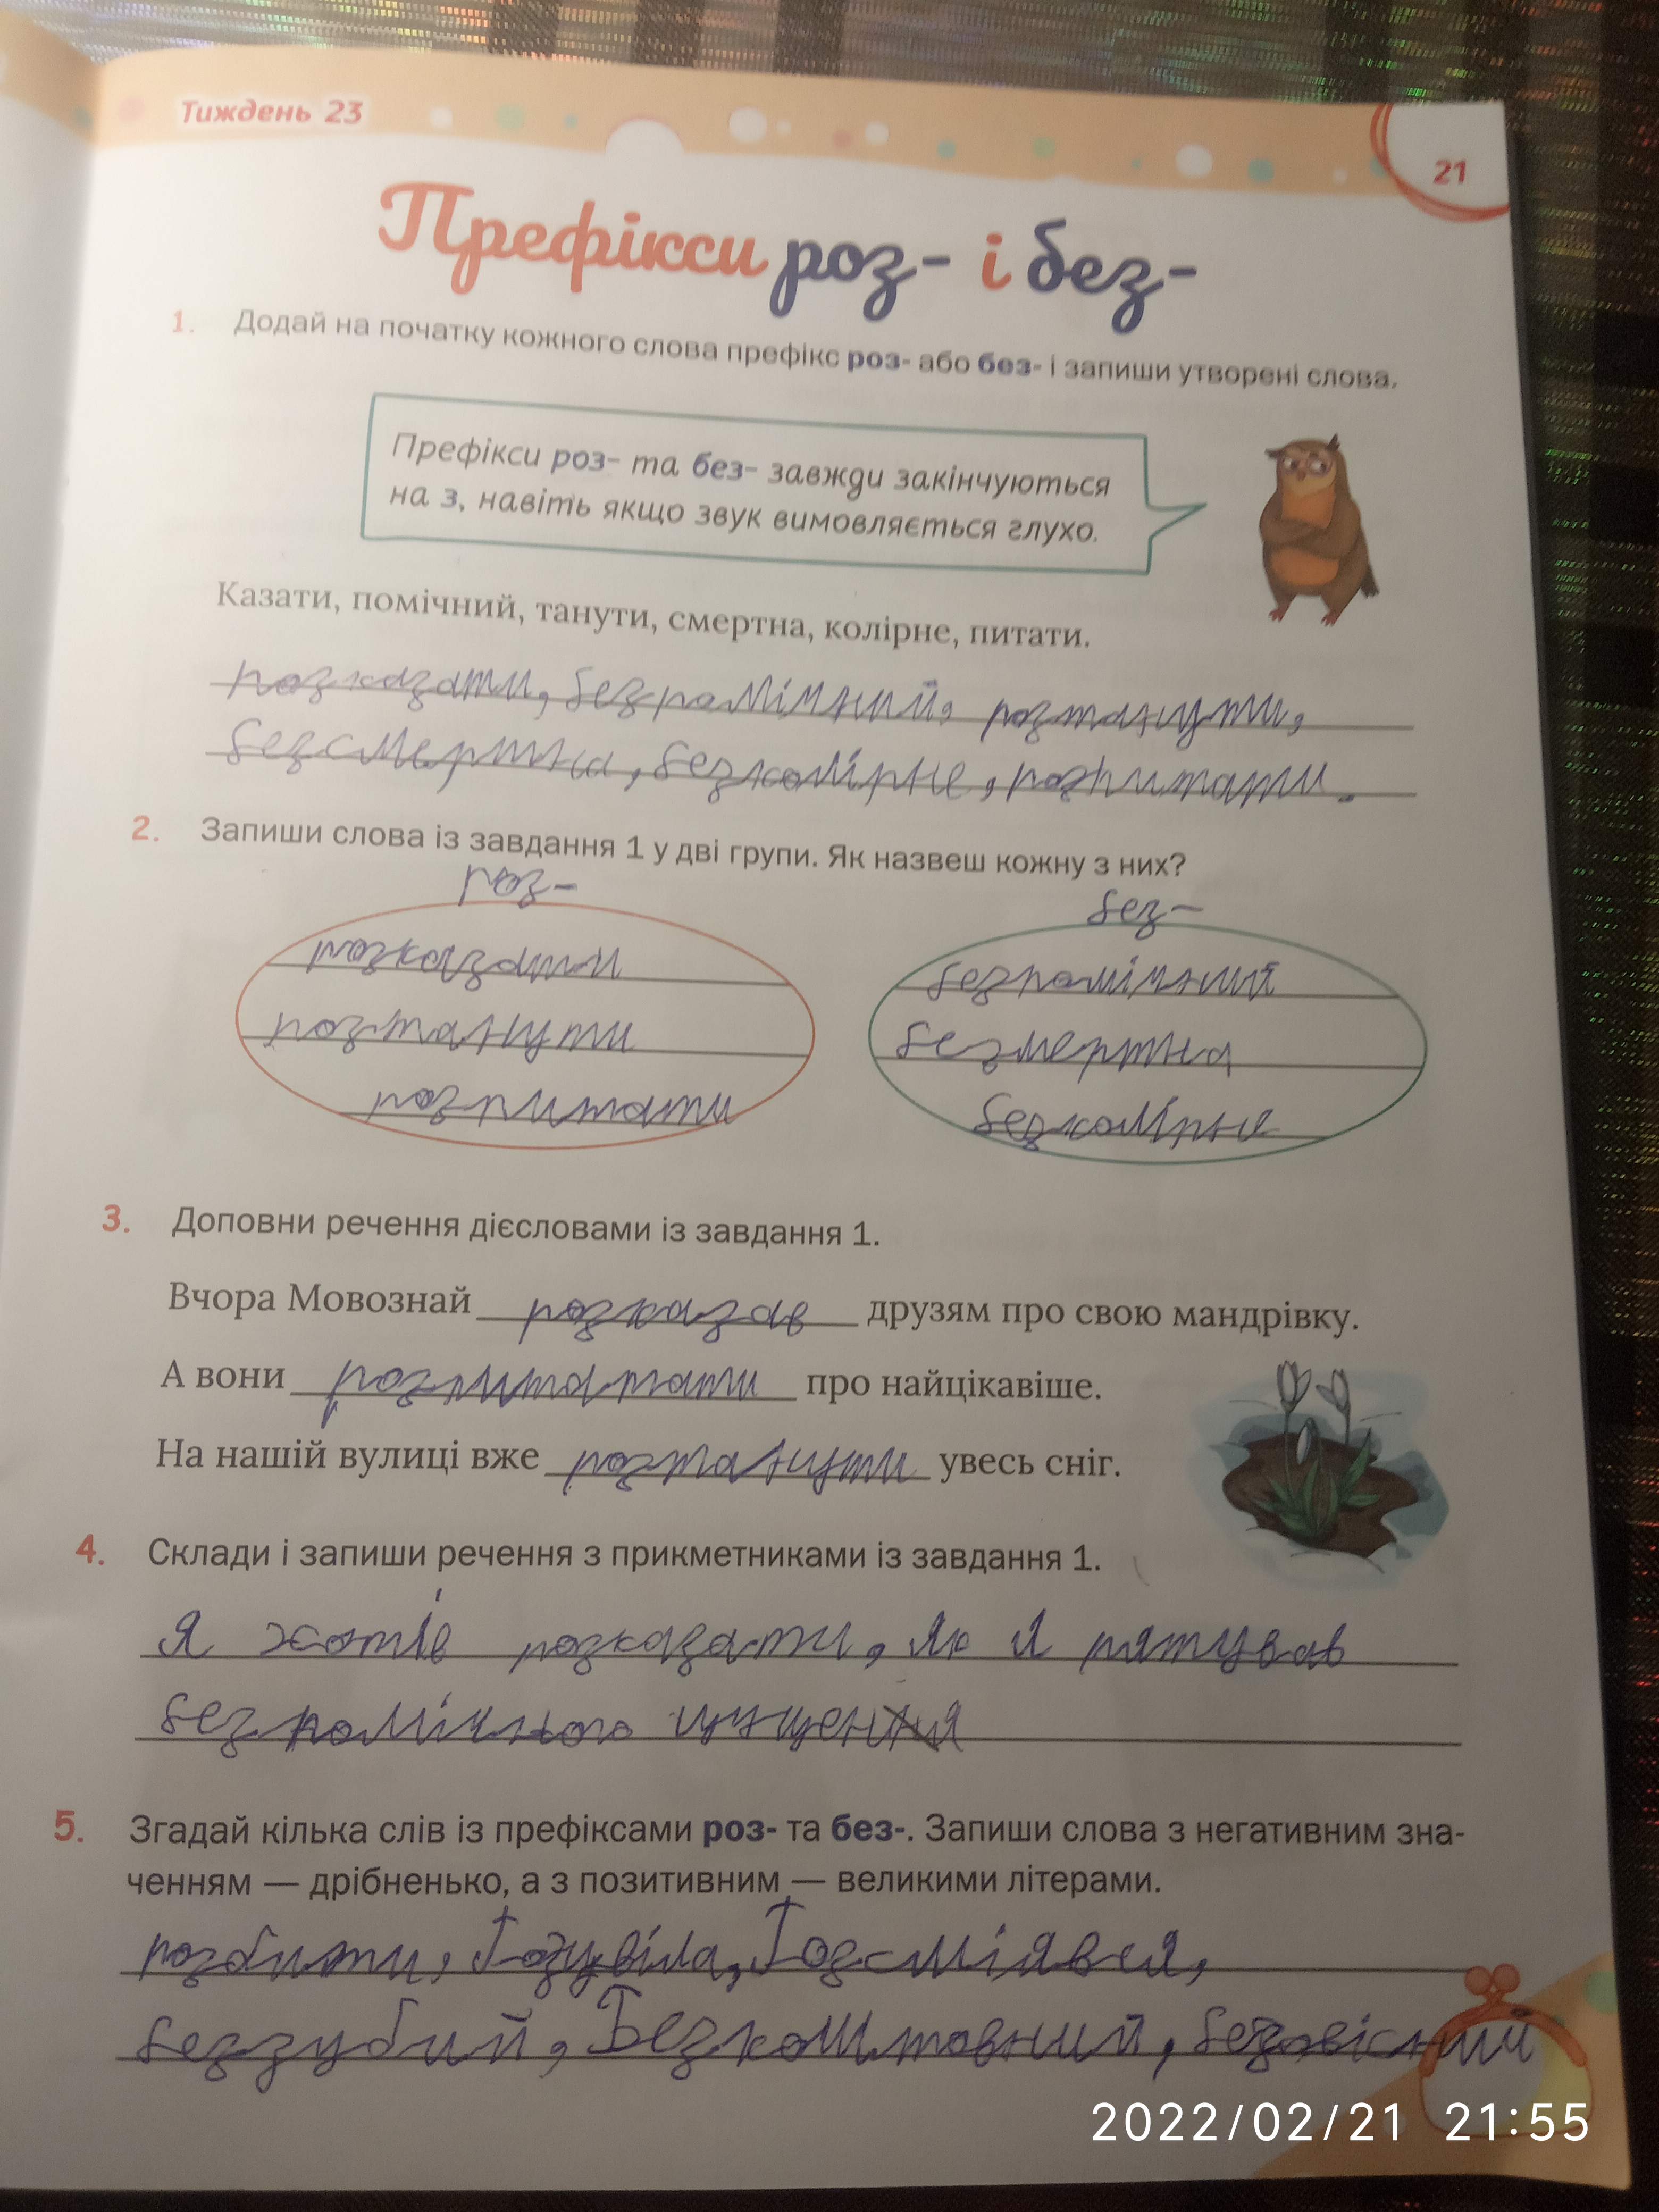 Тиждень 23
21
Префікси роз- і без-
1. Додай на початку кожного слова префікс роз- або без- і запиши утворені слова.
Префікси роз- та без- завжди закінчуються
на з, навіть якщо звук вимовляється глухо.
Казати, помічний, танути, смертна, колірне, питати.
розказати, безпомічний, розтанути,
безсмертна, безколірне, розпитати.
2. Запиши слова із завдання 1 у дві групи. Як назвеш кожну з них?
роз- без-
розказати безпомічний
розтанути безмертна
розпитати безколірне
3. Доповни речення дієсловами із завдання 1.
Вчора Мовознай розказав друзям про свою мандрівку.
А вони про найцікавіше.
На нашій вулиці вже розтанути увесь сніг.
4. Склади і запиши речення з прикметниками із завдання 1.
Я хотів розказати, як я рятував
безпомічного цуценя
5. Згадай кілька слів із префіксами роз- та без-. Запиши слова з негативним зна-
ченням — дрібненько, а з позитивним — великими літерами.
розбити, Розцвіла, Розсміявся,
беззубий, Безкоштовний,
2022/02/21 21:55